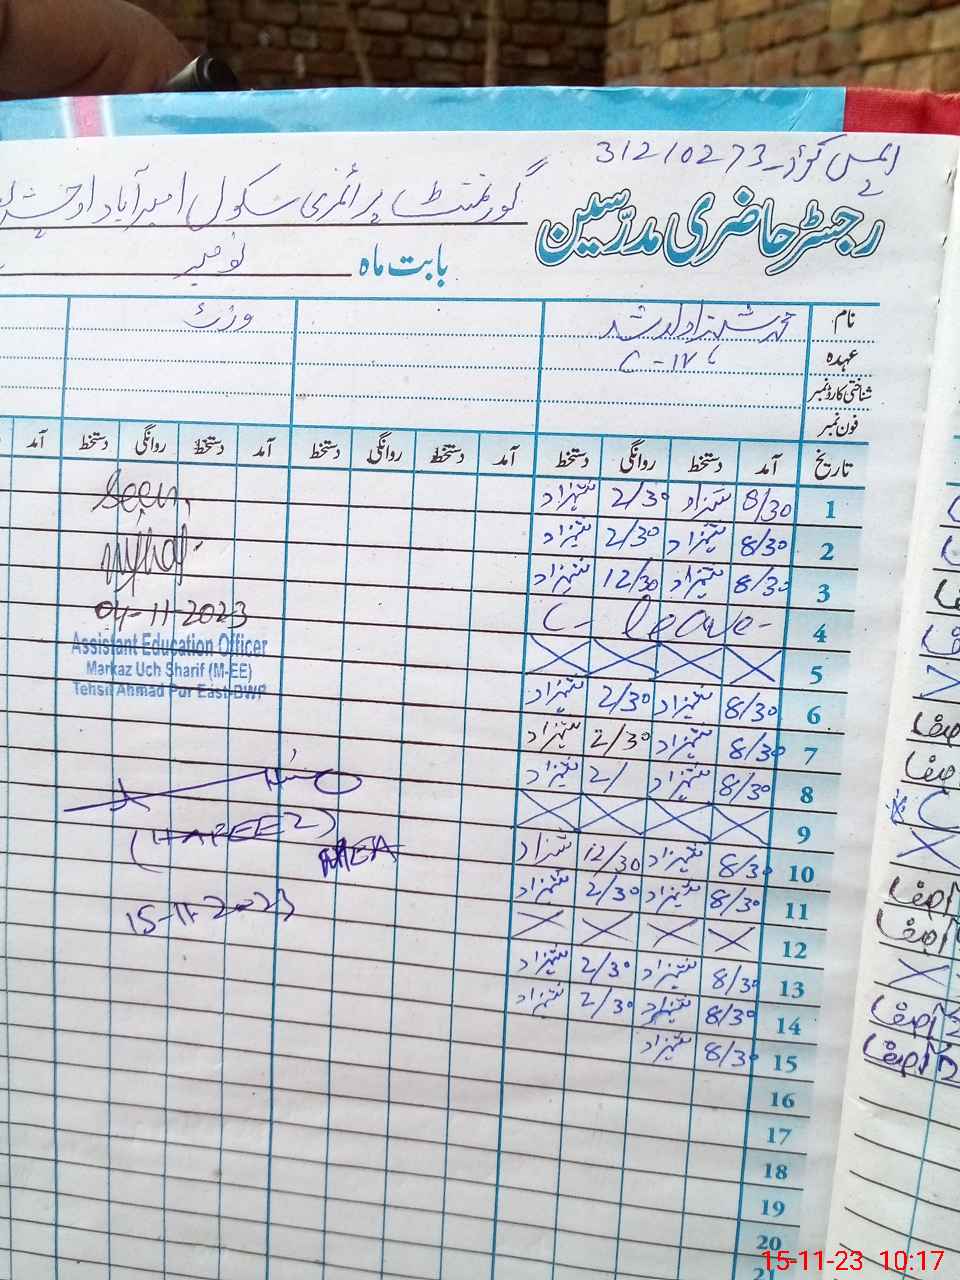 ایمس کوڈ 31210273
رجسٹر حاضری مدرسین گورنمنٹ پرائمری سکول امیر آباد اوچشریف
بابت ماہ نومبر
نام محمد شہزاد ارشد وزٹ
عہدہ
شناختی کارڈ نمبر
فون نمبر
تاریخ آمد دستخط روانگی دستخط آمد دستخط روانگی دستخط آمد دستخط روانگی دستخط آمد
1 8/30 شہزاد 2/30 شہزاد Seen
2 8/30 شہزاد 2/30 شہزاد
3 8/30 شہزاد 12/30 شہزاد
4 C- leave- 04-11-2023
5
Assistant Education Officer
Markaz Uch Sharif (M-EE)
Tehsil Ahmad Pur East BWP
6 8/30 شہزاد 2/30 شہزاد
7 8/30 شہزاد 2/30 شہزاد
8 8/30 شہزاد 2/ شہزاد
9
(HAFEEZ)
MEA
10 8/30 شہزاد 12/30 شہزاد
11 8/30 شہزاد 2/30 شہزاد
15-11-2023
12
13 8/30 شہزاد 2/30 شہزاد
14 8/30 شہزاد 2/30 شہزاد
15 8/30 شہزاد
16
17
18
19
20
15-11-23 10:17